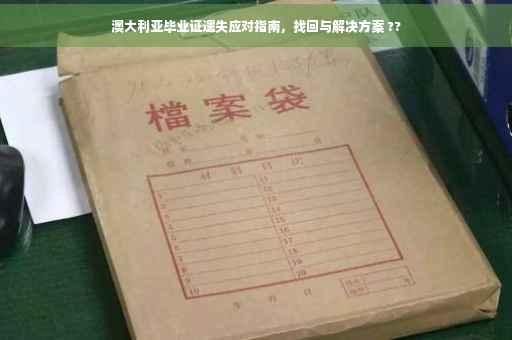 澳大利亚毕业证遗失应对指南，找回与解决方案 ??
檔案袋
材料目次
1
2
3
4
5
6
7
8
9
10
11
12
13
14
15
16
17
18
19
20
年 月 日